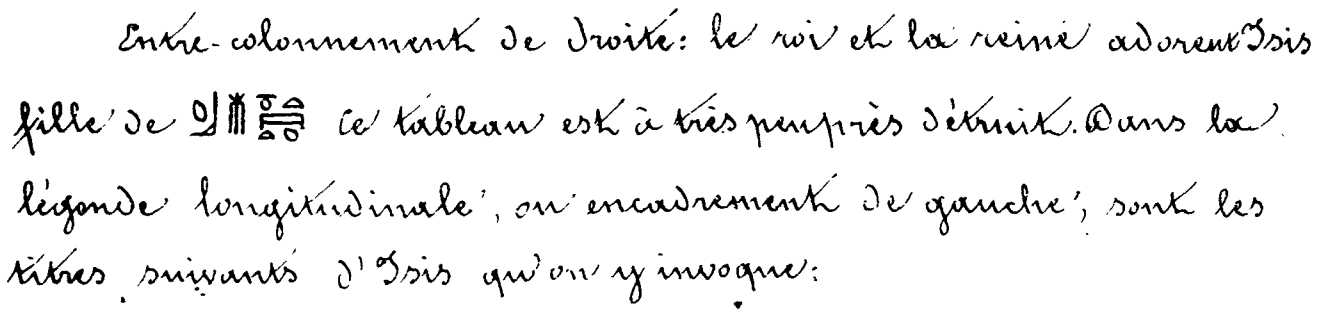 Entre-colonnement de droite: le roi et la reine adorent Isis
fille de Ce tableau est à très peu près détruit. Dans la
légende longitudinale, ou encadrement de gauche, sont les
titres suivants d'Isis qu'on y invoque: